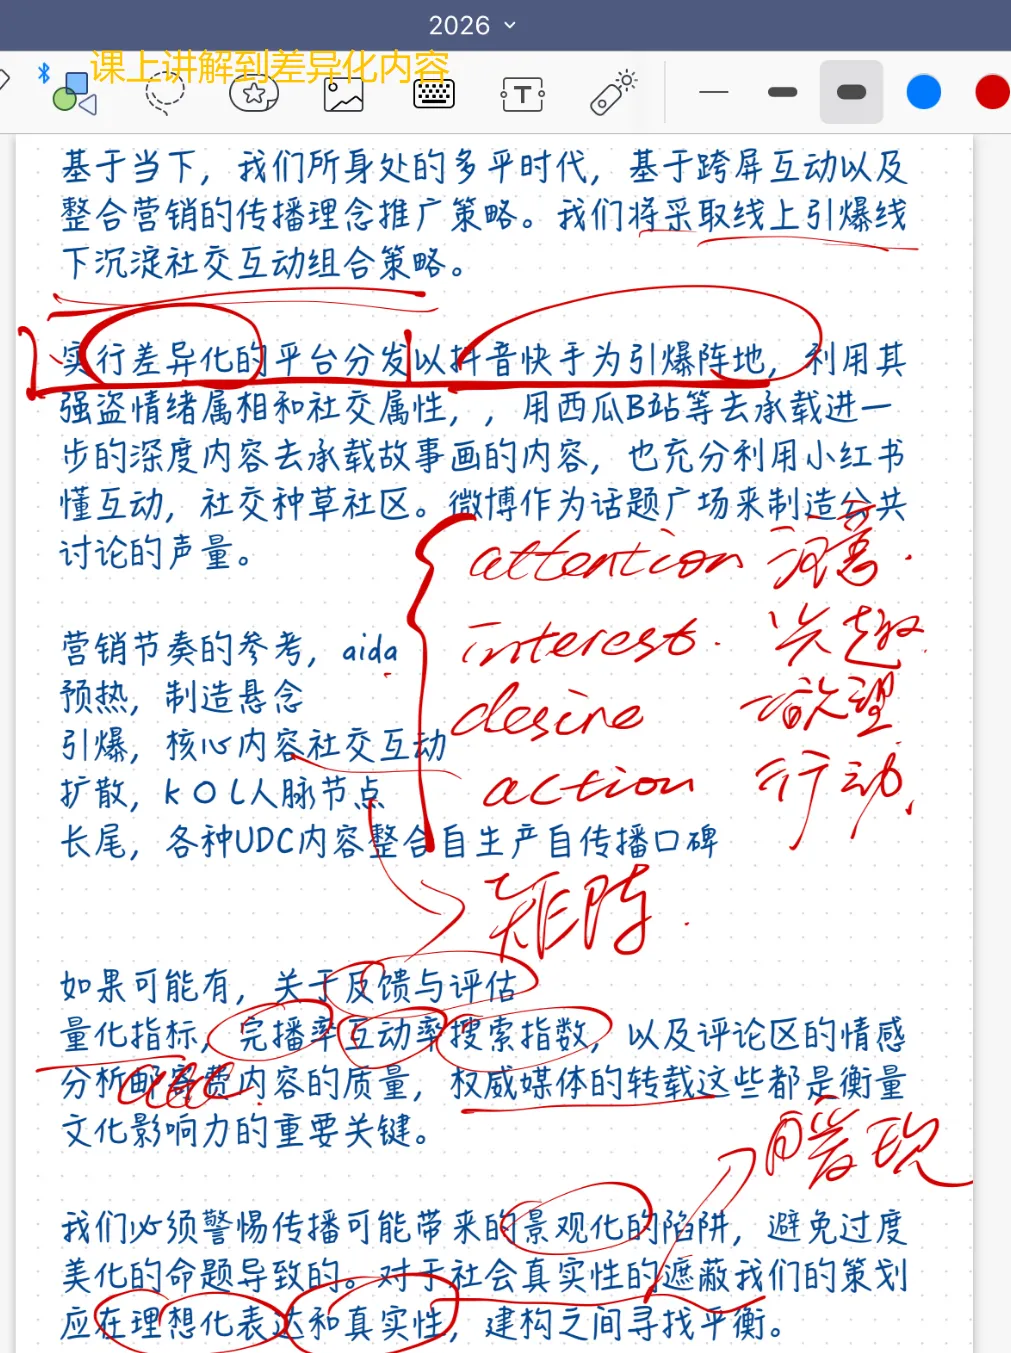 2026
课上讲解到差异化内容
基于当下，我们所身处的多平时代，基于跨屏互动以及
整合营销的传播理念推广策略。我们将采取线上引爆线
下沉淀社交互动组合策略。
实行差异化的平台分发以抖音快手为引爆阵地，利用其
强盗情绪属相和社交属性，，用西瓜B站等去承载进一
步的深度内容去承载故事画的内容，也充分利用小红书
懂互动，社交种草社区。微博作为话题广场来制造公共
讨论的声量。
attention 注意.
interest. 兴趣.
desire 欲望
action 行动.
营销节奏的参考，aida
预热，制造悬念
引爆，核心内容社交互动
扩散，KOL人脉节点
长尾，各种UDC内容整合自生产自传播口碑
矩阵.
如果可能有，关于反馈与评估
量化指标，完播率互动率搜索指数，以及评论区的情感
分析邮寄费内容的质量，权威媒体的转载这些都是衡量
文化影响力的重要关键。
我们必须警惕传播可能带来的景观化的陷阱，避免过度
美化的命题导致的。对于社会真实性的遮蔽我们的策划
应在理想化表达和真实性，建构之间寻找平衡。